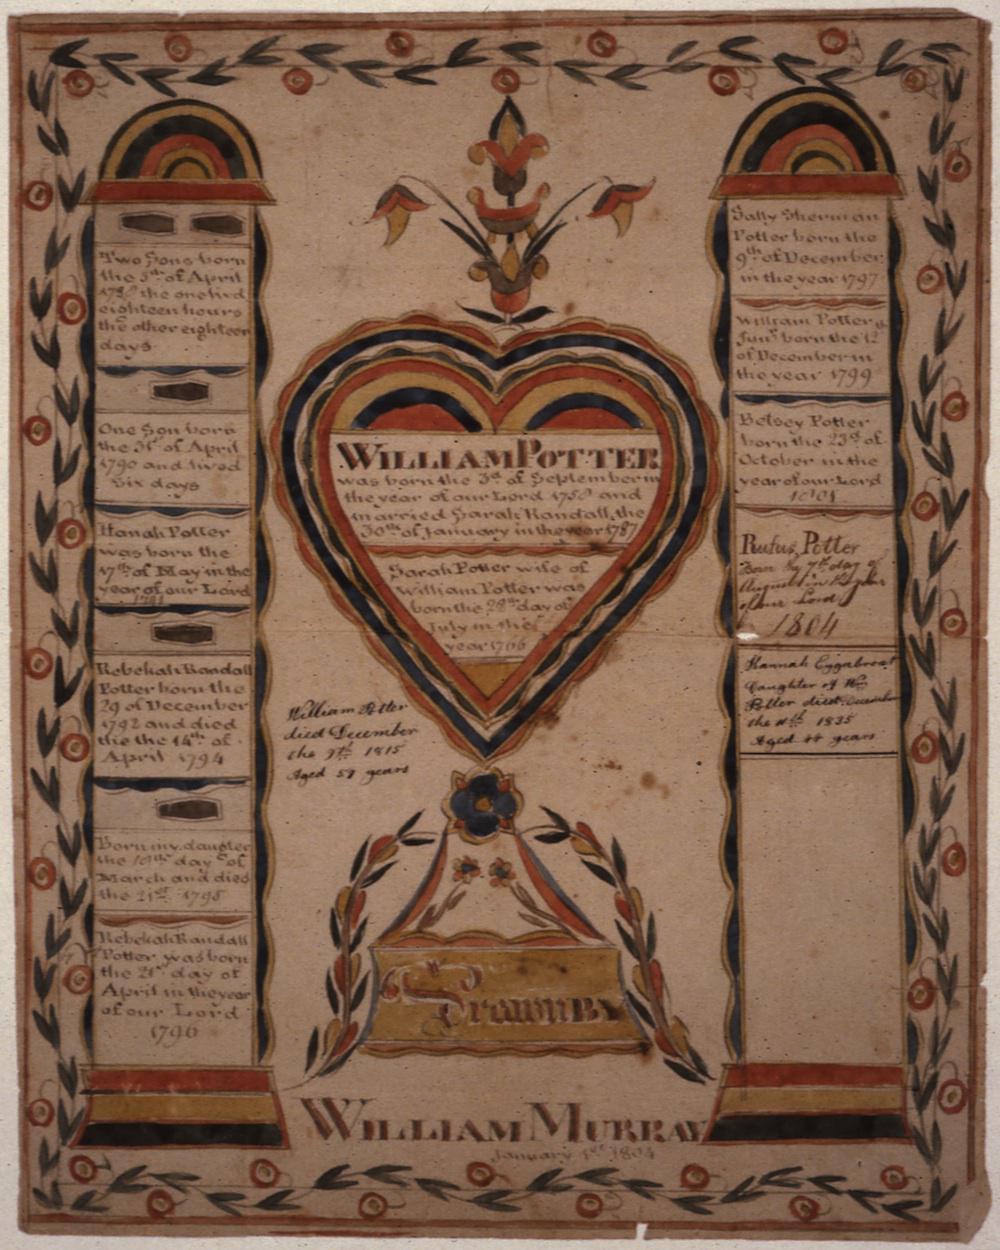 Two Sons born
the 5th of April
the one lived
eighteen hours
the other eighteen
days
One Son born
the 31st of April
1790 and lived
Six days
Hanah Potter
was born the
17th of May in the
year of our Lord
1791
Rebekah Randall
Potter born the
29 of December
1792 and died
the the 14th of
April 1794
Born my daugter
the 19th day of
March and died
the 21st 1795
Rebekah Randall
Potter was born
the 21st day of
April in the year
of our Lord
1796
WILLIAM POTTER
was born the 3rd of September in
the year of our Lord and
married Sarah Randall the
30th of January in the year 1787
Sarah Potter wife of
William Potter was
born the 28th day of
July in the
year 1766
William Potter
died December
the 9th 1815
Aged 59 years
Drawn BY
WILLIAM MURRAY
January 1st 1804
Sally Sherman
Potter born the
9th of December
in the year 1797
William Potter
Junr born the 12
of December in
the year 1799
Betsey Potter
born the 23rd of
October in the
year of our Lord
1801
Rufus Potter
Born the 7th day of
August in the year
of our Lord
1804
Hannah
Daughter of Wm
Potter died December
the 1835
Aged 44 years